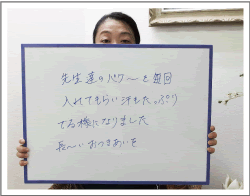 先生達のパワ〜を毎回
入れてもらい汗もたっぷり
でる様になりました
長〜いおつきあいを